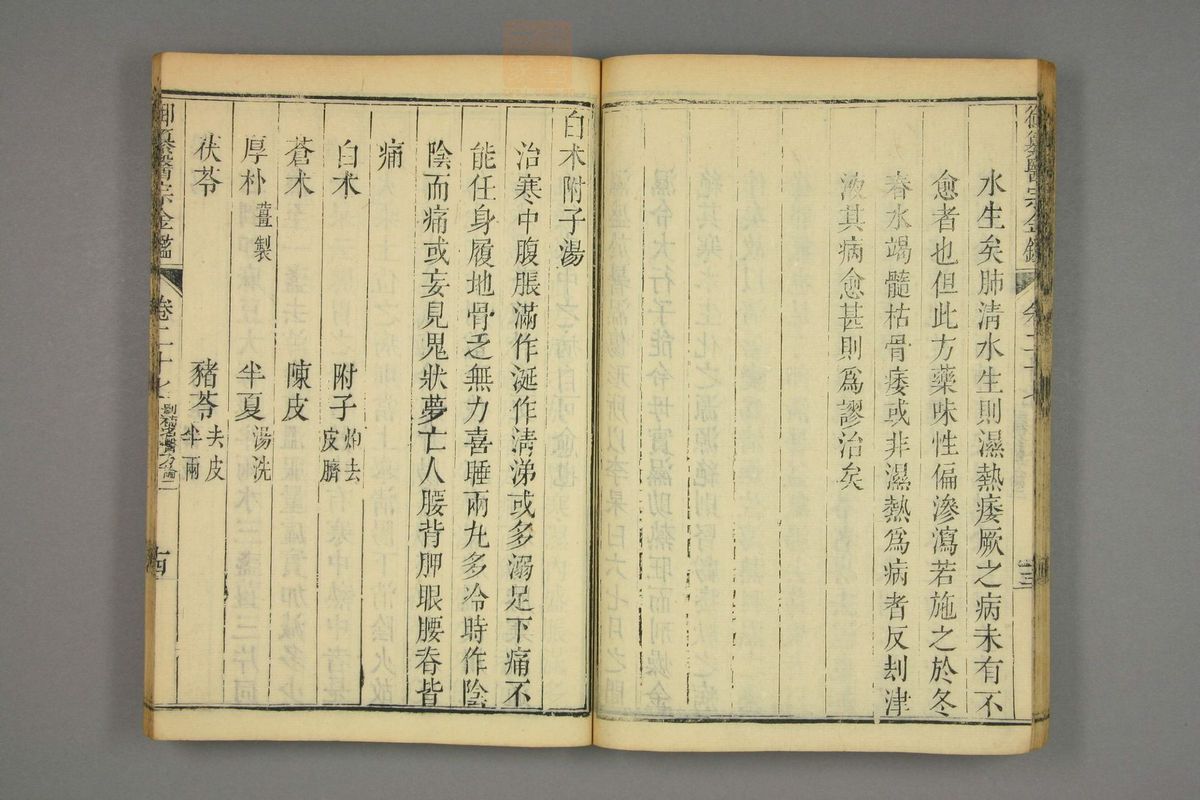 水生矣肺清水生則濕熱痿厥之病未有不
愈者也但此方藥味性偏滲瀉若施之於冬
春水竭髓枯骨痿或非濕熱爲病者反刦津
液其病愈甚則爲謬治矣
白朮附子湯
治寒中腹脹滿作涎作清涕或多溺足下痛不
能任身履地骨乏無力喜睡兩丸多冷時作陰
陰而痛或妄見鬼狀夢亡人腰背胛眼腰脊皆
痛
白朮 附子炮去皮臍
蒼朮 陳皮
厚朴薑製 半夏湯洗
茯苓 豬苓去皮半兩
御纂醫宗金鑑 卷二十七 十四